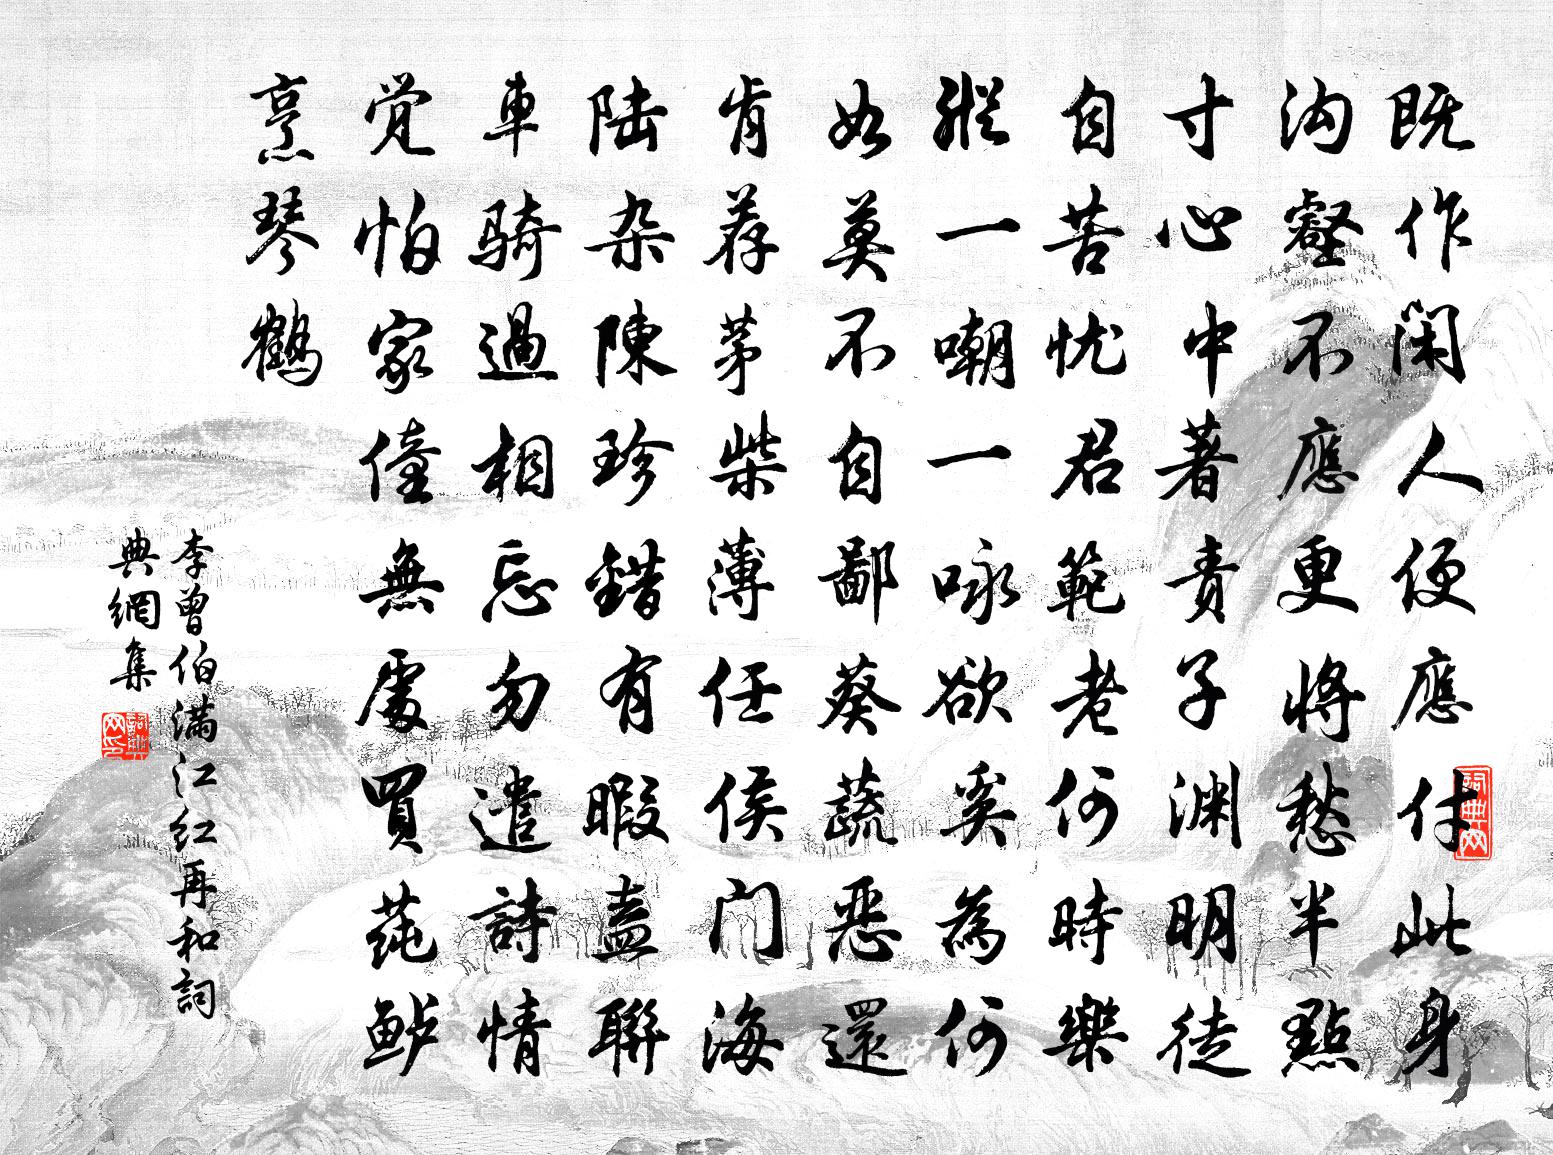 既作闲人便應付此身
沟壑不應更將愁半點
寸心中著责子渊明徒
自苦忧君範老何時樂
縱一嘲一咏欲奚為何
如莫不自鄙葵蔬恶還
肯荐茅柴薄任侯门海
陆杂陳珍錯有暇盍聯
車騎過相忘勿遣詩情
觉怕家僮無處買莼鲈
烹琴鹤
李曾伯滿江红再和詞
典網集